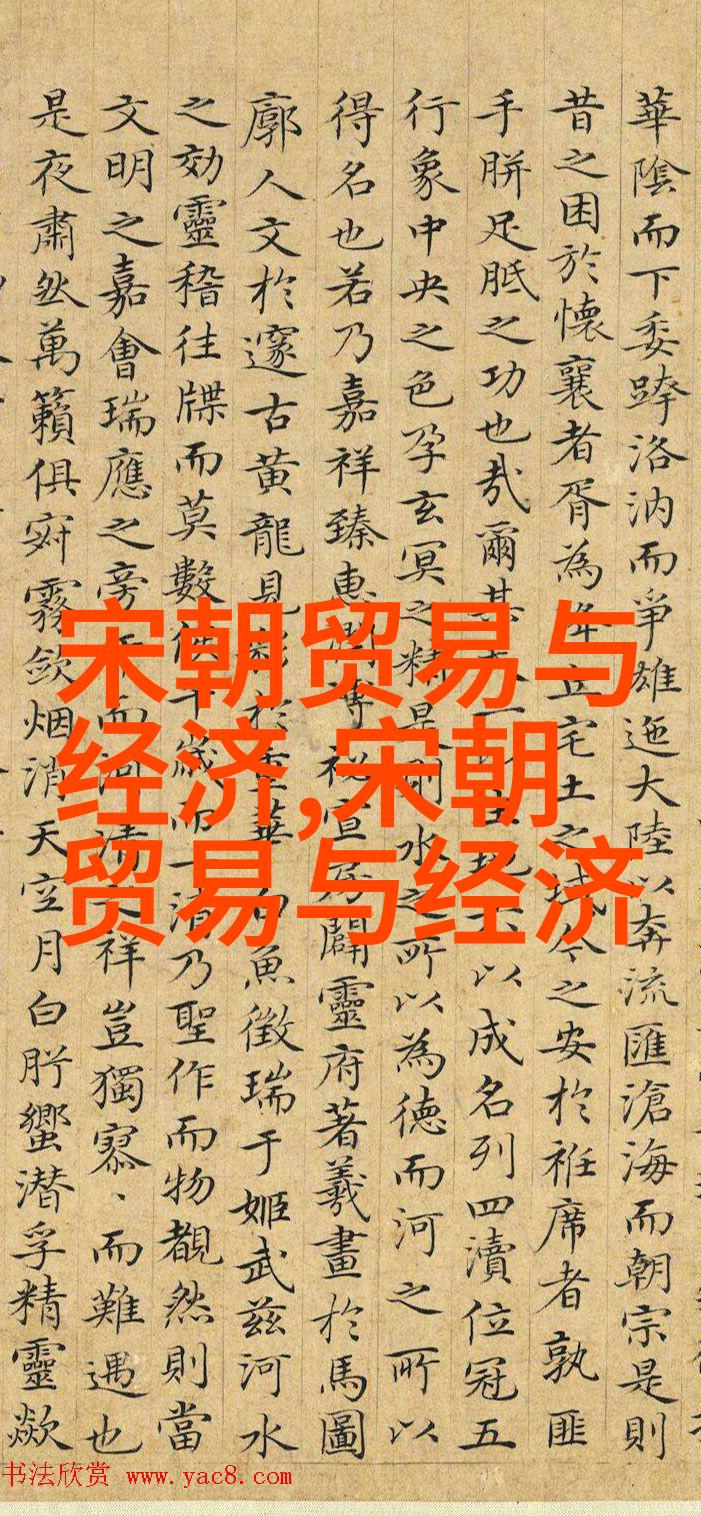 華陰而下委洛汭而爭雄迤大陸以奔流匯滄海而朝宗是則
昔之困於懷襄者胥為宅土之今之安於袵席者孰匪
手胼足胝之功也哉爾其以成名列四瀆位冠五
行象中央之色孕玄冥之精是水之所以為德而河之所以
得名也若乃嘉祥臻惠闢靈府著羲畫於馬圖
廓人文於邃古黃龍見於華白魚徵瑞于姬武茲河水
之効靈稽往牒而莫數千歲而一清乃聖作而物覩然則當
文明之嘉會瑞應之旁而河清祥豈獨寡、而難遇也
是夜肅然萬籟俱寂霧斂烟消天空月白肸蠁潛孚精靈歘
宋朝贸易与
经济,宋朝
贸易与经济
书法欣赏 www.yac8.com